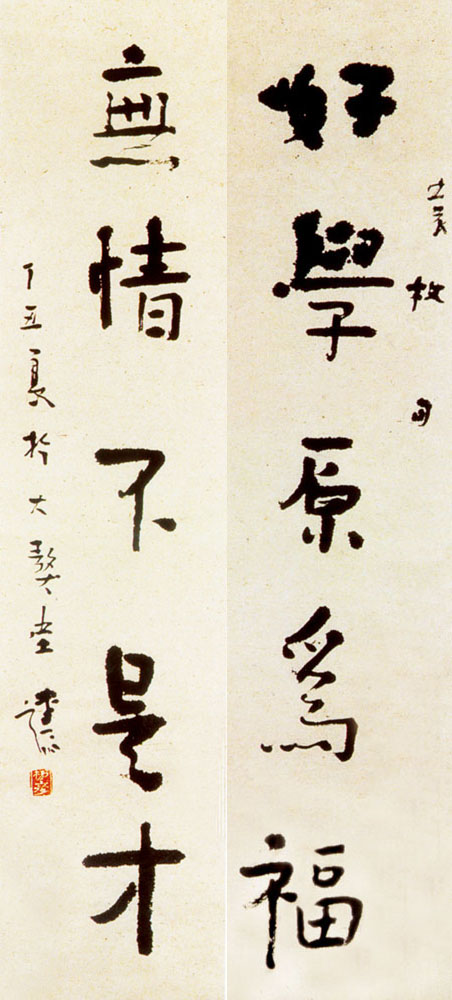 袁枚句
好學原爲福
無情不是才
丁丑夏於大獒堂